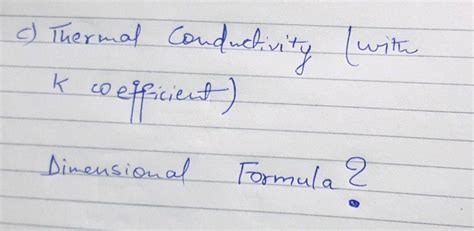 c) Thermal Conductivity (with
K coefficient)
Dimensional Formula?